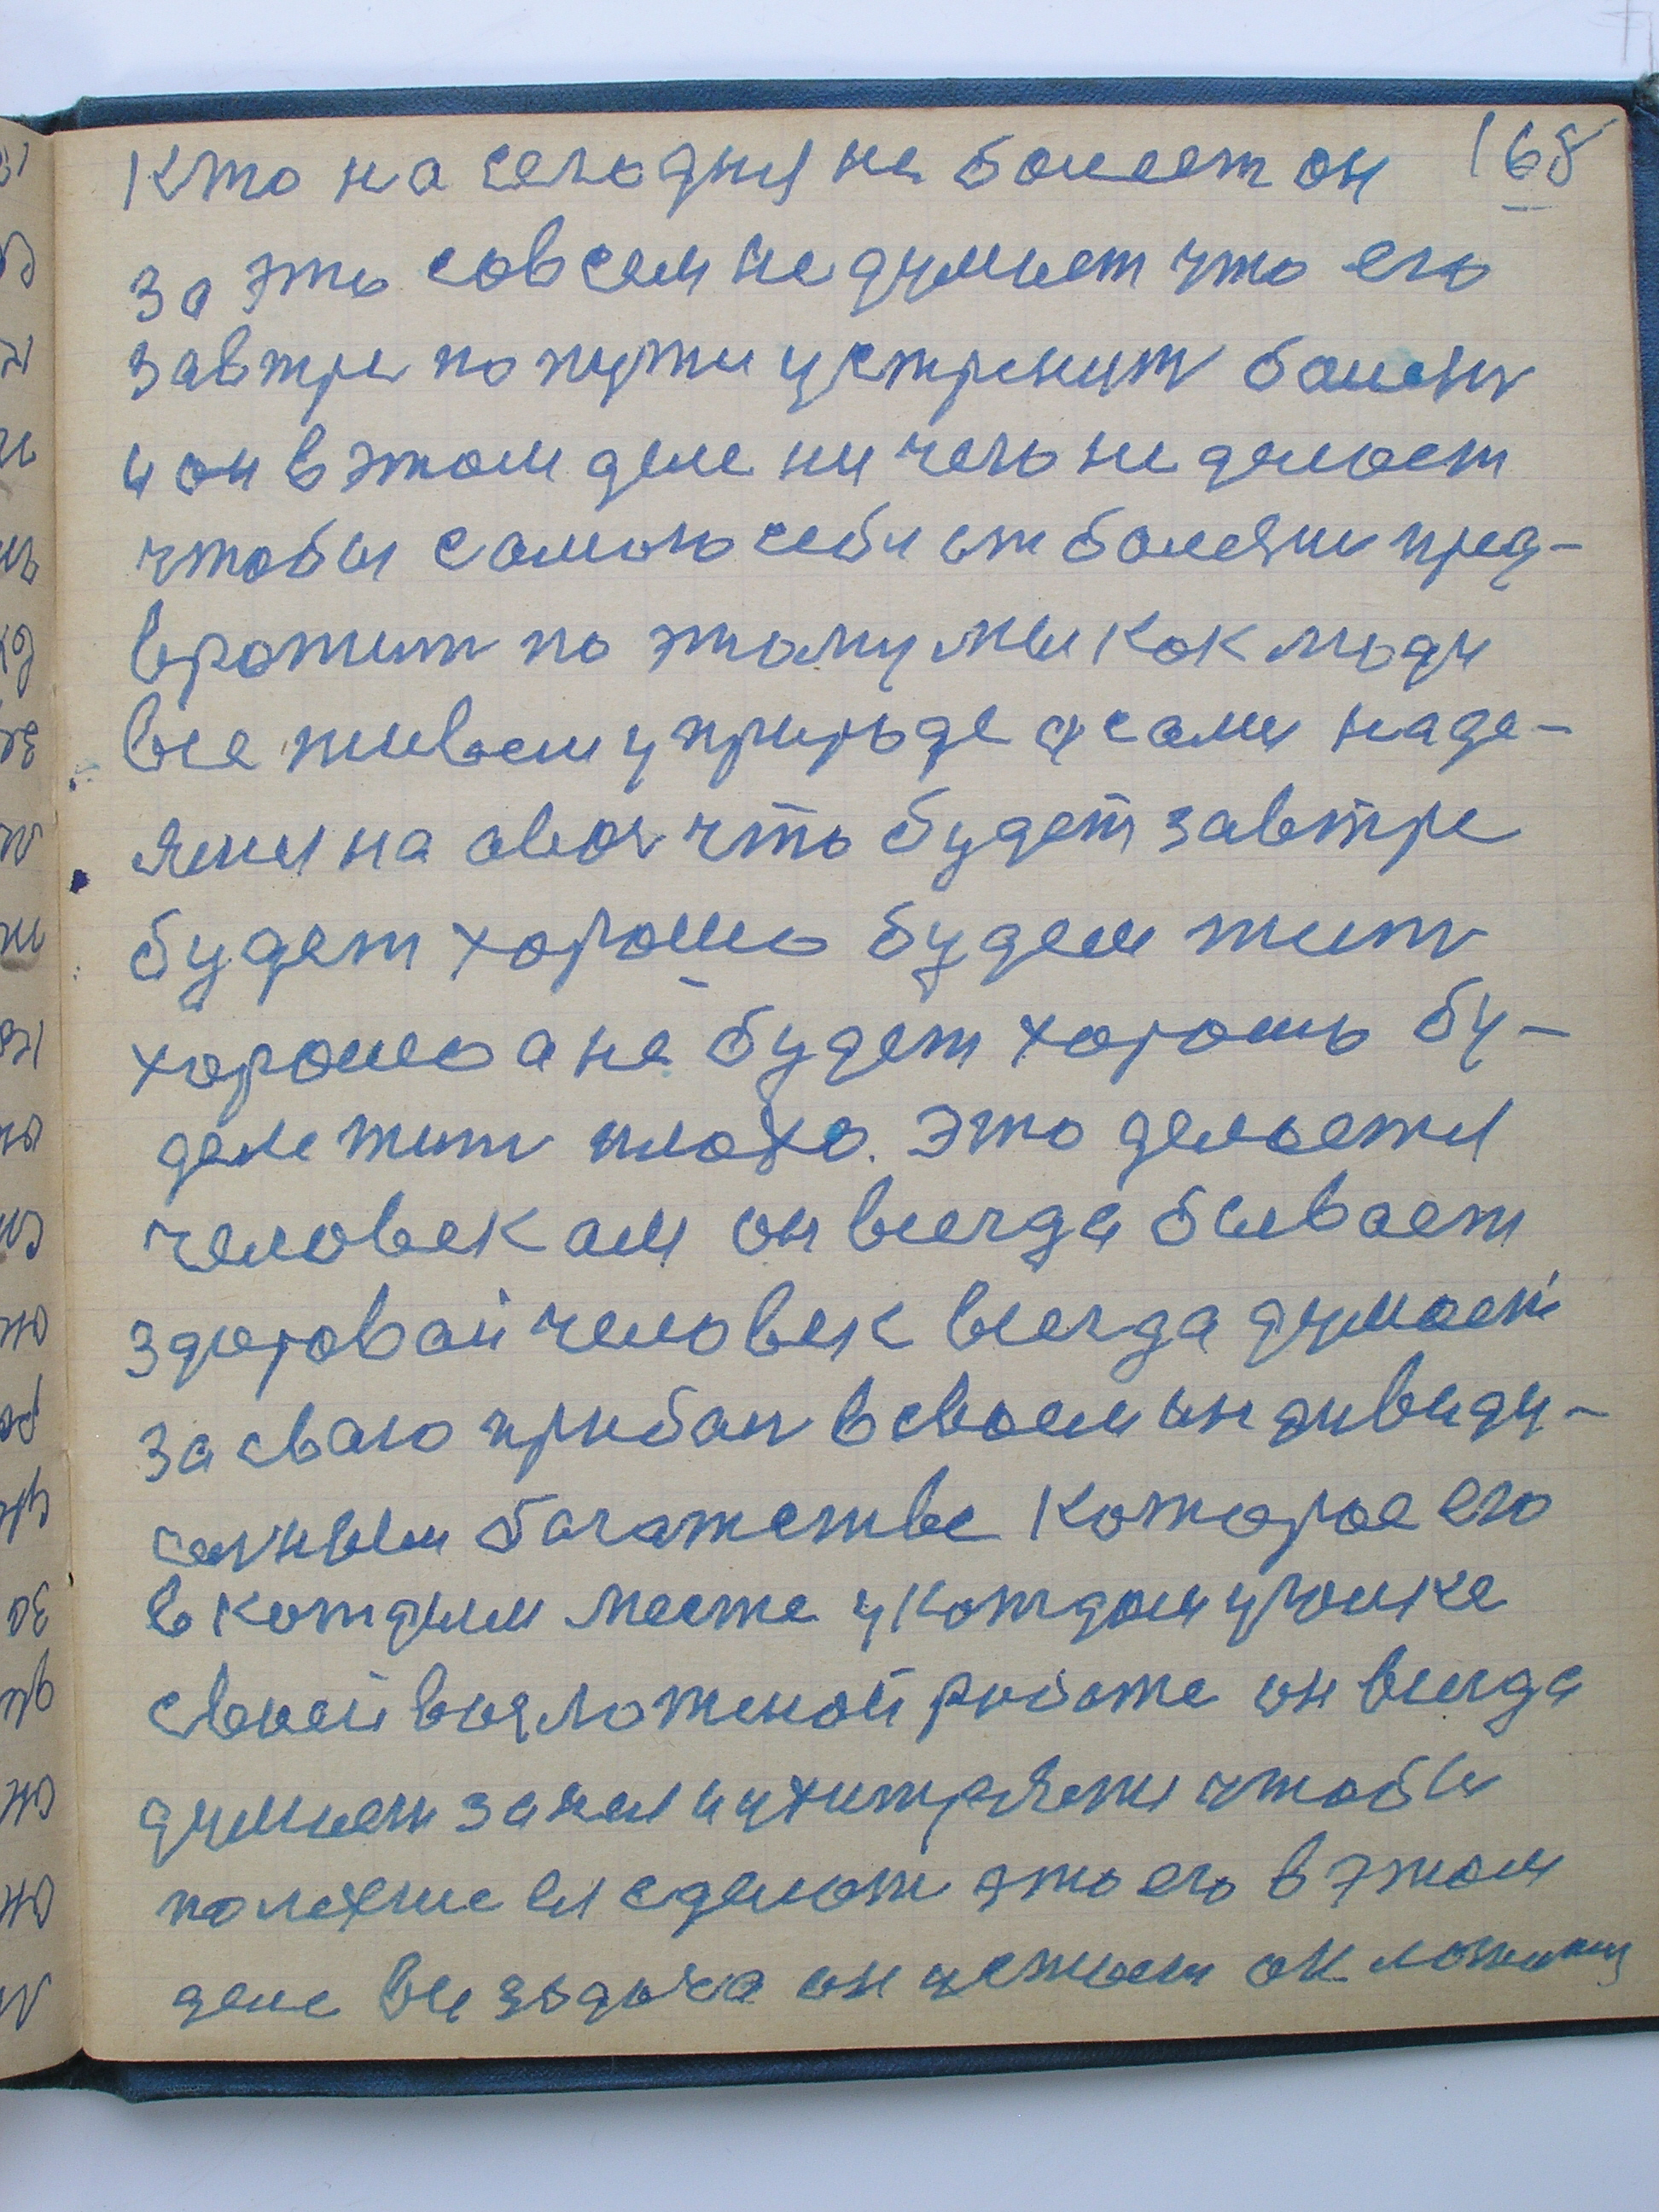 168
Кто на сегодня не болеет он
за это совсем не думает что его
завтре по пути устренит болезнь
и он в этом деле ни чего не делает
чтобы самого себя от болезни пред-
вротит по этому мы как люди
все живем у природе а сами наде-
ямся на авось что будет завтре
будет хорошо будем жить
хорошо а не будет хорошо бу-
дем жить плохо. Это делается
человекам он всегда бывает
здоровай человек всегда думает
за сваю прибыль в своем индивиду-
альным багатстве которое его
в каждым месте у каждом уголке
своей возложеной работе он всегда
думает за нея и ухитряется чтобы
полехше ея сделать это его в этом
деле он